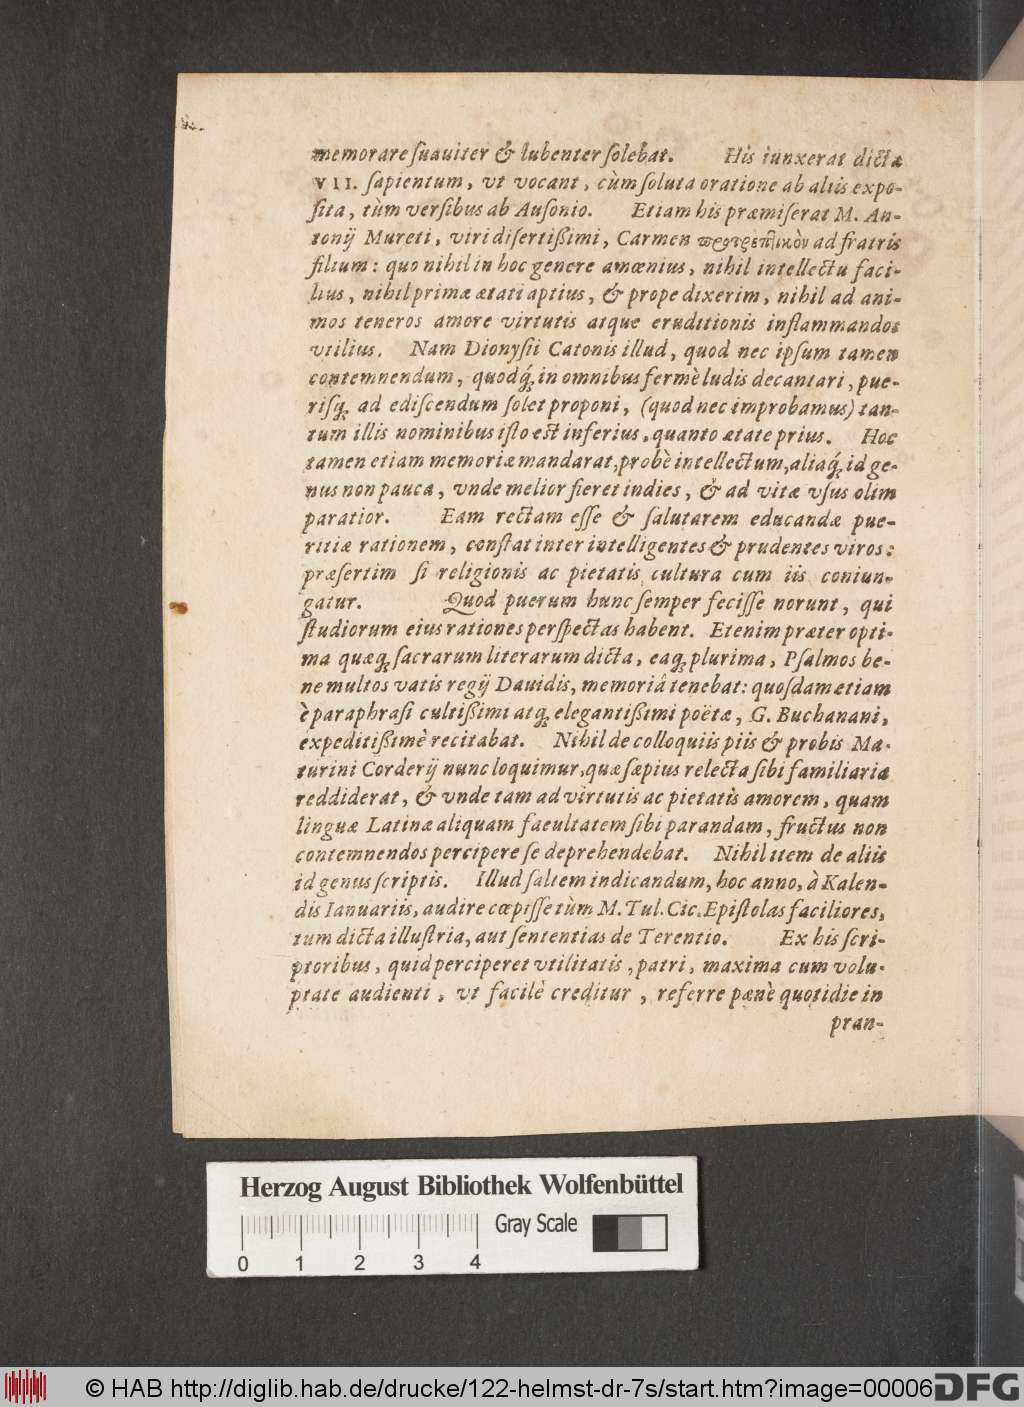 memorare ſuauiter & lubenter ſolebat. His iunxerat dicta
VII. ſapientum, vt vocant, cùm ſoluta oratione ab aliis expo-
ſita, tùm verſibus ab Auſonio. Etiam his præmiſerat M. An-
tonij Mureti, viri diſertißimi, Carmen προτρεπτικὸν ad fratris
filium: quo nihil in hoc genere amœnius, nihil intellectu faci-
lius, nihil primæ ætati aptius, & prope dixerim, nihil ad ani-
mos teneros amore virtutis atque eruditionis inflammandos
vtilius. Nam Dionyſii Catonis illud, quod nec ipſum tamen
contemnendum, quodq́; in omnibus fermè ludis decantari, pue-
riſq; ad ediſcendum ſolet proponi, (quod nec improbamus) tan-
tum illis nominibus iſto est inferius, quanto ætate prius. Hoc
tamen etiam memoriæ mandarat, probè intellectum, aliaq́; id ge-
nus non pauca, vnde melior fieret indies, & ad vitæ vſus olim
paratior. Eam rectam eſſe & ſalutarem educandæ pue-
ritiæ rationem, conſtat inter intelligentes & prudentes viros:
præſertim ſi religionis ac pietatis cultura cum iis coniun-
gatur. Quod puerum hunc ſemper feciſſe norunt, qui
ſtudiorum eius rationes perſpectas habent. Etenim præter opti-
ma quæq; ſacrarum literarum dicta, eaq; plurima, Pſalmos be-
ne multos vatis regij Dauidis, memoriâ tenebat: quoſdam etiam
è paraphraſi cultißimi atq; elegantißimi poëtæ, G. Buchanani,
expeditißimè recitabat. Nihil de colloquiis piis & probis Ma-
turini Corderij nunc loquimur, quæ ſæpius relecta ſibi familiaria
reddiderat, & vnde tam ad virtutis ac pietatis amorem, quam
linguæ Latinæ aliquam facultatem ſibi parandam, fructus non
contemnendos percipere ſe deprehendebat. Nihil item de aliis
id genus ſcriptis. Illud ſaltem indicandum, hoc anno, à Kalen-
dis Ianuariis, audire cœpiſſe tùm M. Tul. Cic. Epiſtolas faciliores,
tum dicta illuſtria, aut ſententias de Terentio. Ex his ſcri-
ptoribus, quid perciperet vtilitatis, patri, maxima cum volu-
ptate audienti, vt facilè creditur, referre pænè quotidie in
pran-
Herzog August Bibliothek Wolfenbüttel
Gray Scale
0 1 2 3 4
© HAB http://diglib.hab.de/drucke/122-helmst-dr-7s/start.htm?image=00006
DFG